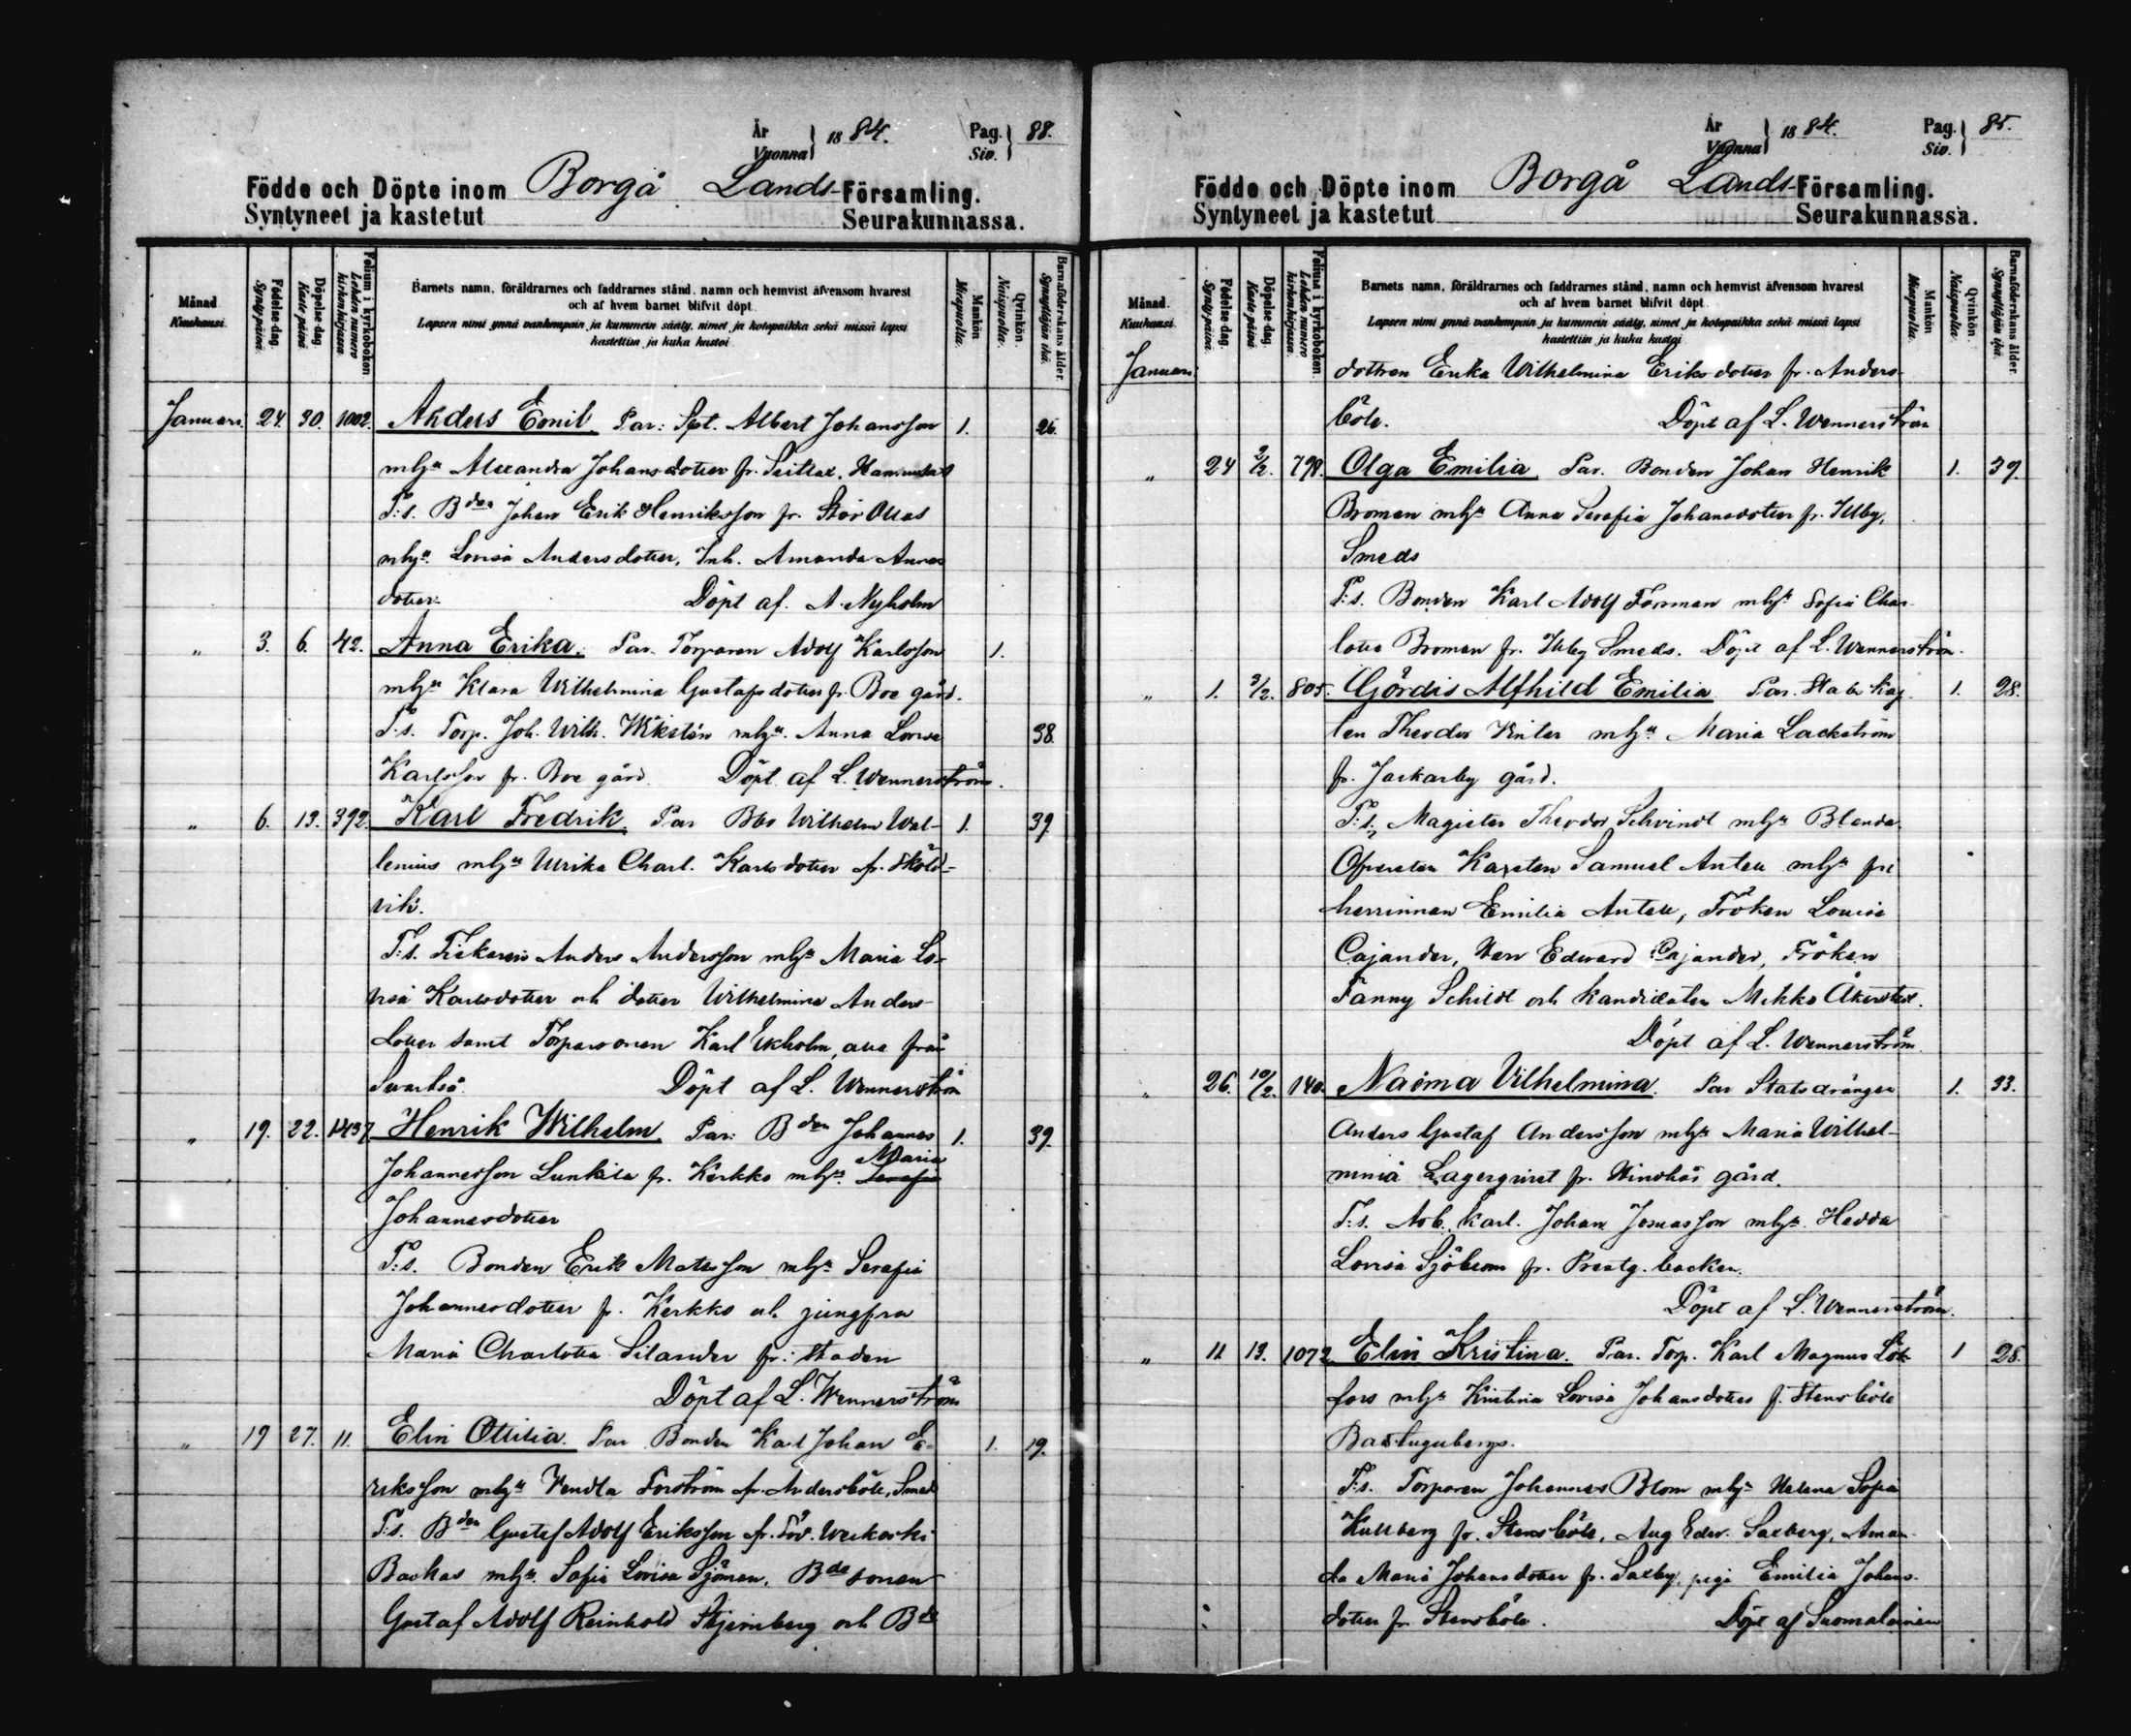 År
Vuonna } 1884.
Pag.
Siv. } 88.
Födde och Döpte inom Borgå Lands-Församling.
Syntyneet ja kastetut Seurakunnassa.
Månad. Kuukausi.
Födelse-dag. Synty-päivä.
Döpelse-dag. Kaste-päivä.
Folium i kyrkoboken Lehden numero kirkonkirjassa.
Barnets namn, föräldrarnes och faddrarnes stånd, namn och hemvist äfvensom hvarest
och af hvem barnet blifvit döpt.
Lapsen nimi ynnä vanhempain ja kummein sääty, nimet ja kotopaikka sekä missä lapsi
kastettiin ja kuka kastoi
Mankön Miespuolia.
Qvinkön. Naispuolia.
Barnaföderskans ålder. Synnyttäjän ikä.
Januari. 24. 30. 1002. Anders Emil Par: Spt. Albert Johansson 1. 26.
mhje Alexandra Johansdotter fr.
F:s. Bden Johan Erik Henriksson fr. Stor
mhje. Lovisa Andersdotter, Inh. Amanda Anders
dotter. Döpt af. A. Nyholm
„ 3. 6. 42. Anna Erika. Par. Torparen Adolf Karlsson 1.
mhje Klara Wilhelmina Gustafsdotter fr. Boe gård.
F:s. Torp. Joh. Wilh. Wikstén mhje. Anna Lovisa 38.
Karlsson fr. Boe gård. Döpt af L. Wennerström.
„ 6. 13. 392. Karl Fredrik. Par Bbs Wilhelm Wal- 1. 39.
lenius mhje Ulrika Charl. Karlsdotter fr. Sköld-
vik.
F:s. Fiskaren Anders Andersson mhje Maria Lo-
visa Karlsdotter och dotter Wilhelmina Anders-
dotter samt Torparsonen Karl Ekholm, alla från
Svartså. Döpt af L. Wennerström
„ 19. 22. 1437 Henrik Wilhelm. Par: Bden Johannes 1. 39.
Maria
Johannesson Lunkila fr. Kerkko mhje. Serafia
Johannesdotter
F:s. Bonden Erik Matsson mhje Serafia
Johannesdotter fr. Kerkko och jungfru
Maria Charlotta Silander fr: staden
Döpt af L. Wennerström
„ 19 27. 11. Elin Ottilia. Par Bonden Karl Johan E- 1. 19.
riksson mhje Vendla Forström fr. Andersböle, Smeds
F:s. Bden Gustaf Adolf Eriksson fr.
Backas mhje. Sofia Lovisa Sjöman, Bde sonen
Gustaf Adolf Reinhold Stjernberg och Bde
År
Vuonna } 1884.
Pag.
Siv. } 85.
Födde och Döpte inom Borgå Lands-Församling.
Syntyneet ja kastetut Seurakunnassa.
Månad. Kuukausi.
Födelse-dag. Synty-päivä.
Döpelse-dag. Kaste-päivä.
Folium i kyrkoboken Lehden numero kirkonkirjassa.
Barnets namn, föräldrarnes och faddrarnes stånd, namn och hemvist äfvensom hvarest
och af hvem barnet blifvit döpt.
Lapsen nimi ynnä vanhempain ja kummein sääty, nimet ja kotopaikka sekä missä lapsi
kastettiin ja kuka kastoi
Mankön Miespuolia.
Qvinkön. Naispuolia.
Barnaföderskans ålder. Synnyttäjän ikä.
Januari. dottren Erika Wilhelmina Eriksdotter fr. Anders-
böle. Döpt af L. Wennerström
„ 24 2/2. 798. Olga Emilia. Par. Bonden Johan Henrik 1. 39.
Broman mhje Anna Serafia Johansdotter fr. Illby,
Smeds
F:s. Bonden Karl Adolf Forsman mhje Sofia Char-
lotta Broman fr. Illby Smeds. Döpt af L. Wennerström.
„ 1. 3/2. 805. Gördis Alfhild Emilia Par. Stabs Kap- 1. 28.
ten Theodor Winter mhje Maria Lackström
fr. Jackarby gård.
F:s, Magister Theodor Schvindt mhje Blenda.
Öfversten Karsten Samuel Antell mhje fri
herrinnan Emilia Antell, Fröken Louise
Cajander, Herr Edward Cajander, Fröken
Fanny Schildt och Kandidaten Mikko Åkerstedt.
Döpt af L. Wennerström
„ 26. 10/2. 140. Naëma Vilhelmina. Par Statsdrängen 1. 33.
Anders Gustaf Andersson mhje Maria Wilhel-
mina Lagerqvist fr. gård.
F:s. Arb. karl. Johan Jonasson mhje. Hedda
Lovisa Sjöblom fr. Prestg. backen.
Döpt af L. Wennerström.
„ 11 13. 1072. Elin Kristina. Par. Torp. Karl Magnus Löf- 1 28.
fors mhje Kristina Lovisa Johansdotter f. Stensböle
Badstugubergs.
F:s. Torparen Johannes Blom mhje Helena Sofia
Kullberg fr. Stensböle, Aug Edw. Saxberg, Aman-
da Maria Johansdotter fr. Saxby, piga Emilia Johans-
dotter fr Stensböle. Döpt af Suomalainen